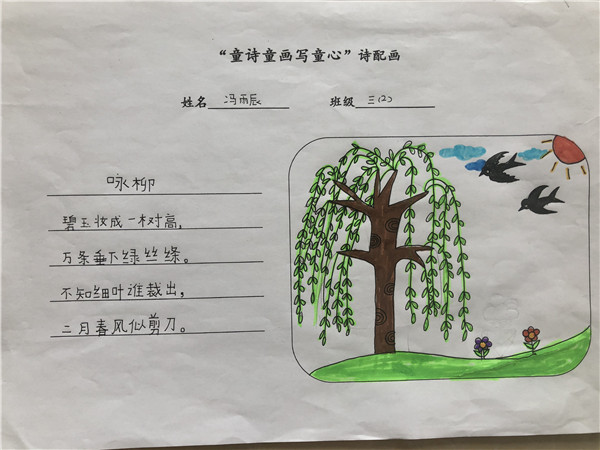 “童诗童画写童心”诗配画
姓名 冯雨辰 班级 三(2)
咏柳
碧玉妆成一树高,
万条垂下绿丝绦。
不知细叶谁裁出,
二月春风似剪刀。